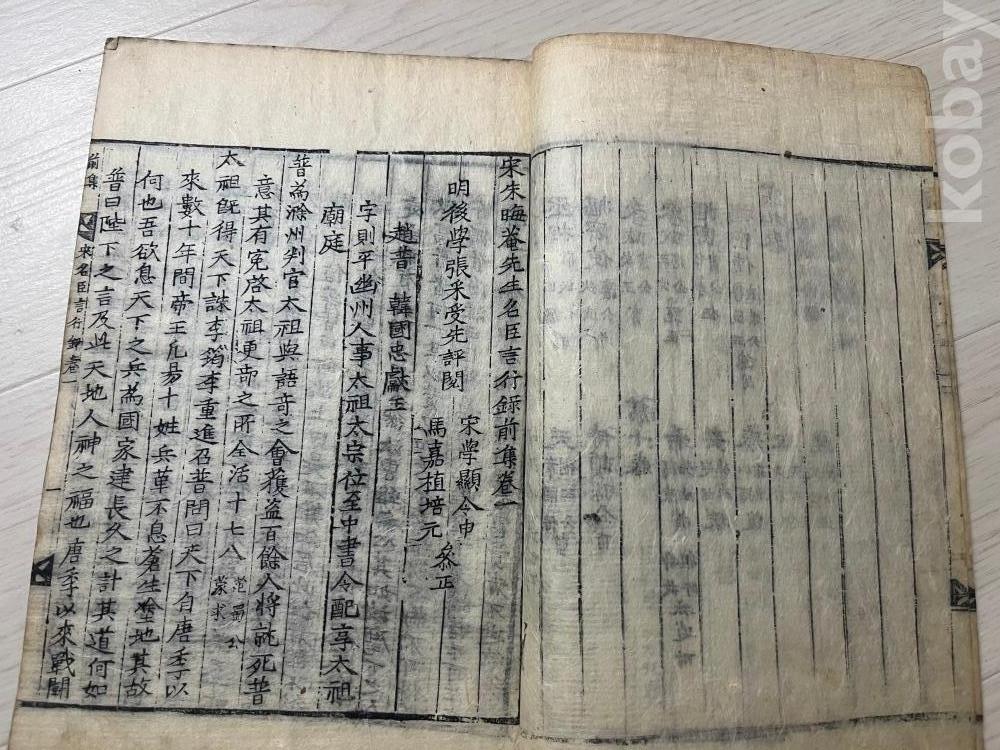 宋朱晦菴先生名臣言行錄前集卷一
明後學張采受先評閱
宋學顯令申
馬嘉植培元
參正
趙普 韓國忠獻王
字則平幽州人事太祖太宗位至中書令配享太祖
廟庭
普爲滁州判官太祖與語奇之會獲盜百餘人將就死普
意其有冤啓太祖更訊之所全活十七八 范蜀公
蒙求
太祖旣得天下誅李筠李重進召普問曰天下自唐季以
來數十年間帝王凡易十姓兵革不息蒼生塗地其故
何也吾欲息天下之兵爲國家建長久之計其道何如
普曰陛下之言及此天地人神之福也唐季以來戰鬪
前集 宋名臣言行錄卷一 一
kobay